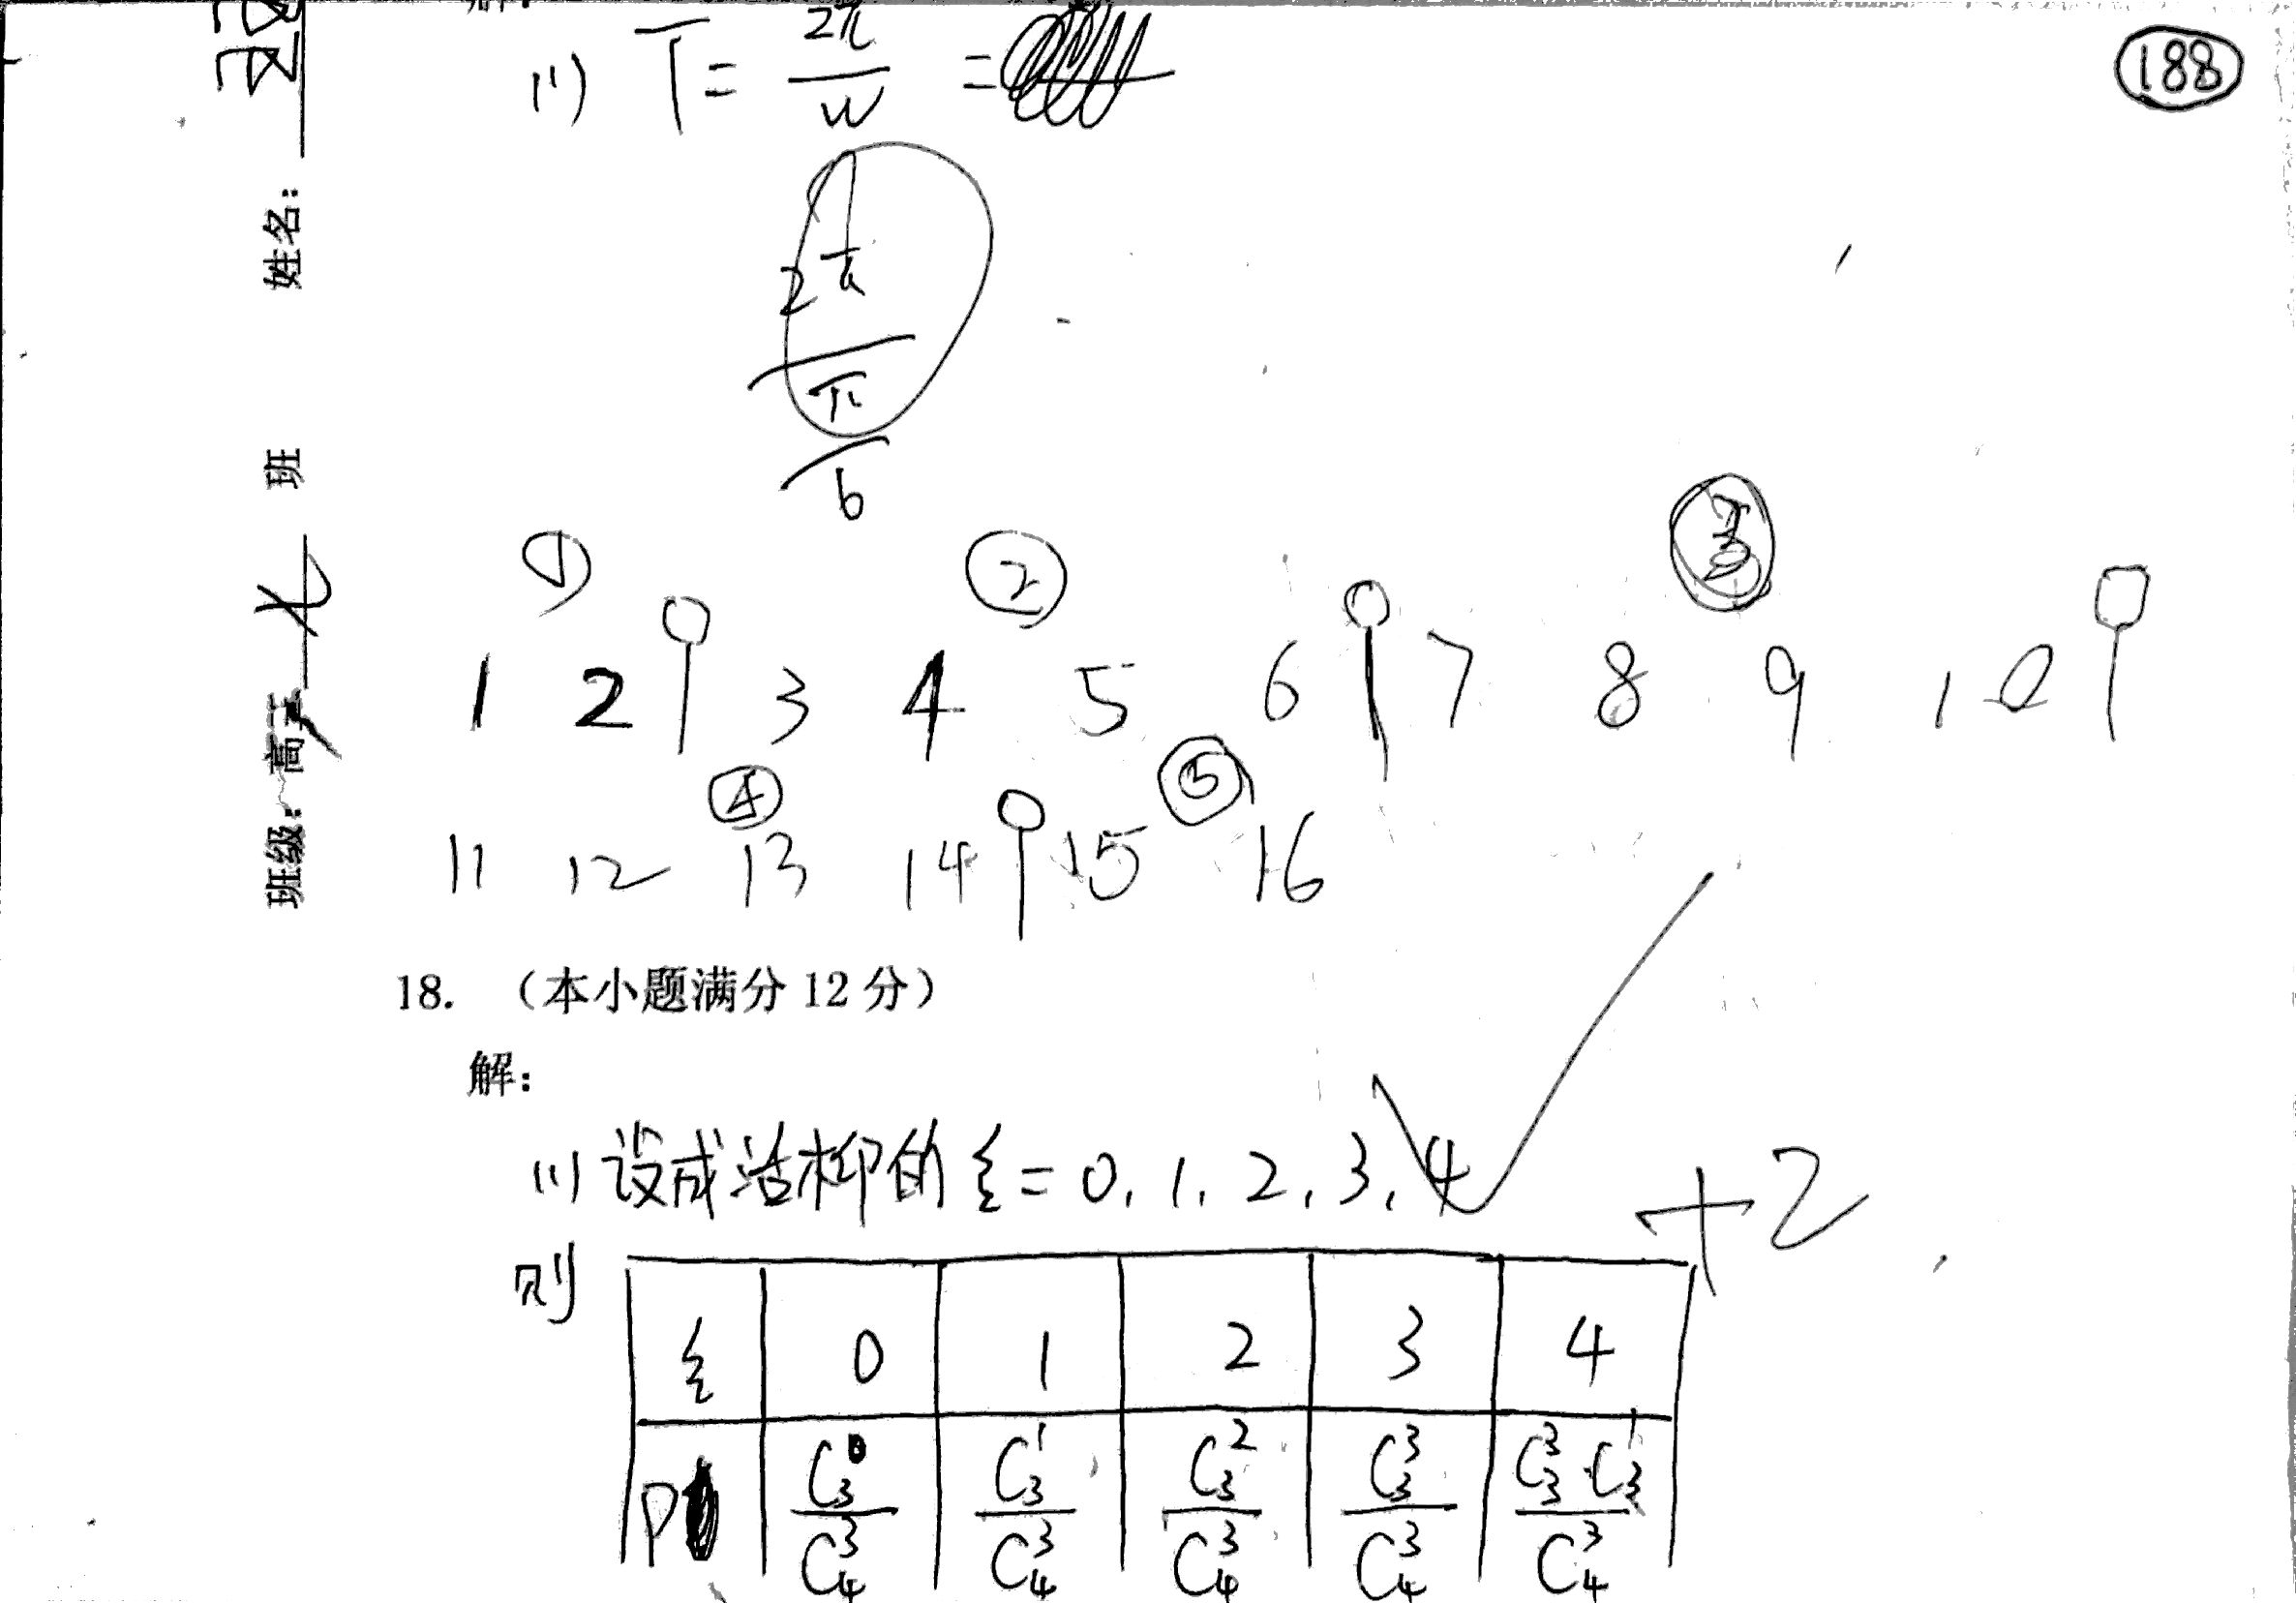 (1) T = 2π/w =
188
2π/π/6
① ② ③
1 2 3 4 5 6 7 8 9 10
④ ⑤
11 12 13 14 15 16
18. （本小题满分 12 分）
解：
(1) 设成活柳的 ξ = 0, 1, 2, 3, 4
+2
则
ξ 0 1 2 3 4
P C₃⁰/C₄³ C₃¹/C₄³ C₃²/C₄³ C₃³/C₄³ C₃³·C₃¹/C₄³
姓名：
班
班级：高